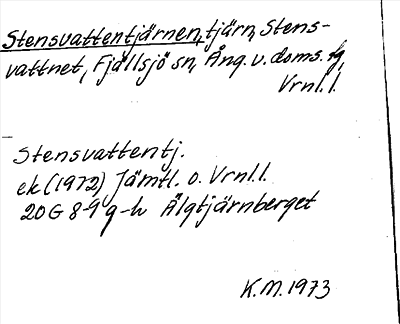 Stensvattentjärnen, tjärn, Stens-
vattnet, Fjällsjö sn, Ång. v. doms. fg,
Vrnl.l.
Stensvattentj.
ek (1972) Jämtl. o. Vrnl.l.
20G 8-9 g-h Älgtjärnberget
K.M. 1973